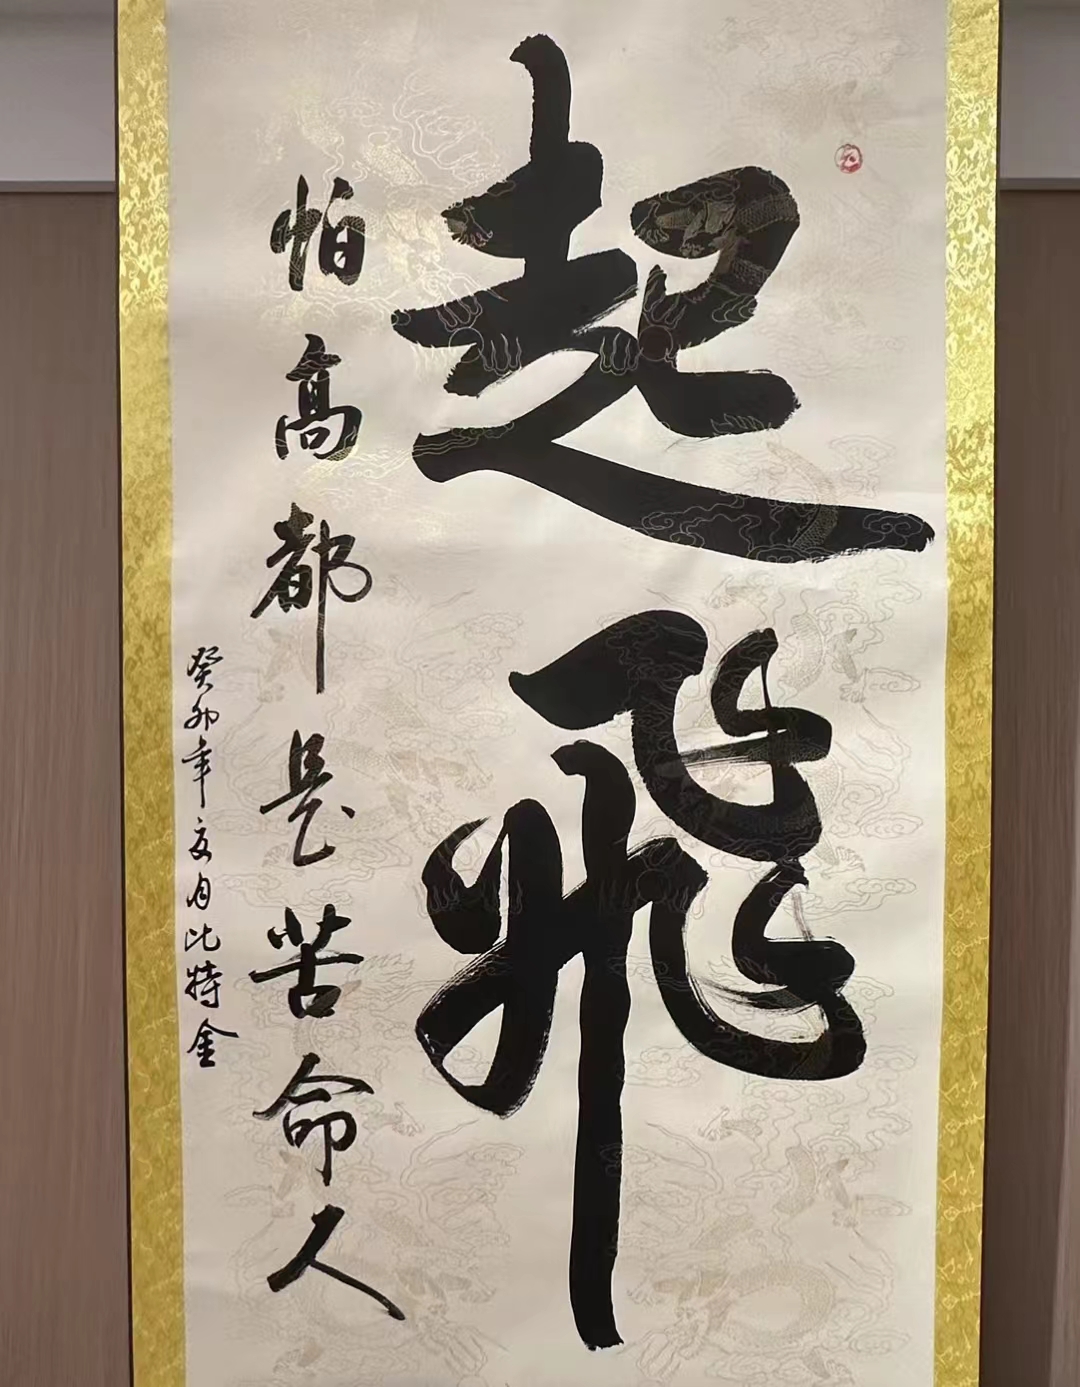 起飛
怕高都是苦命人
癸卯年亥月比特金